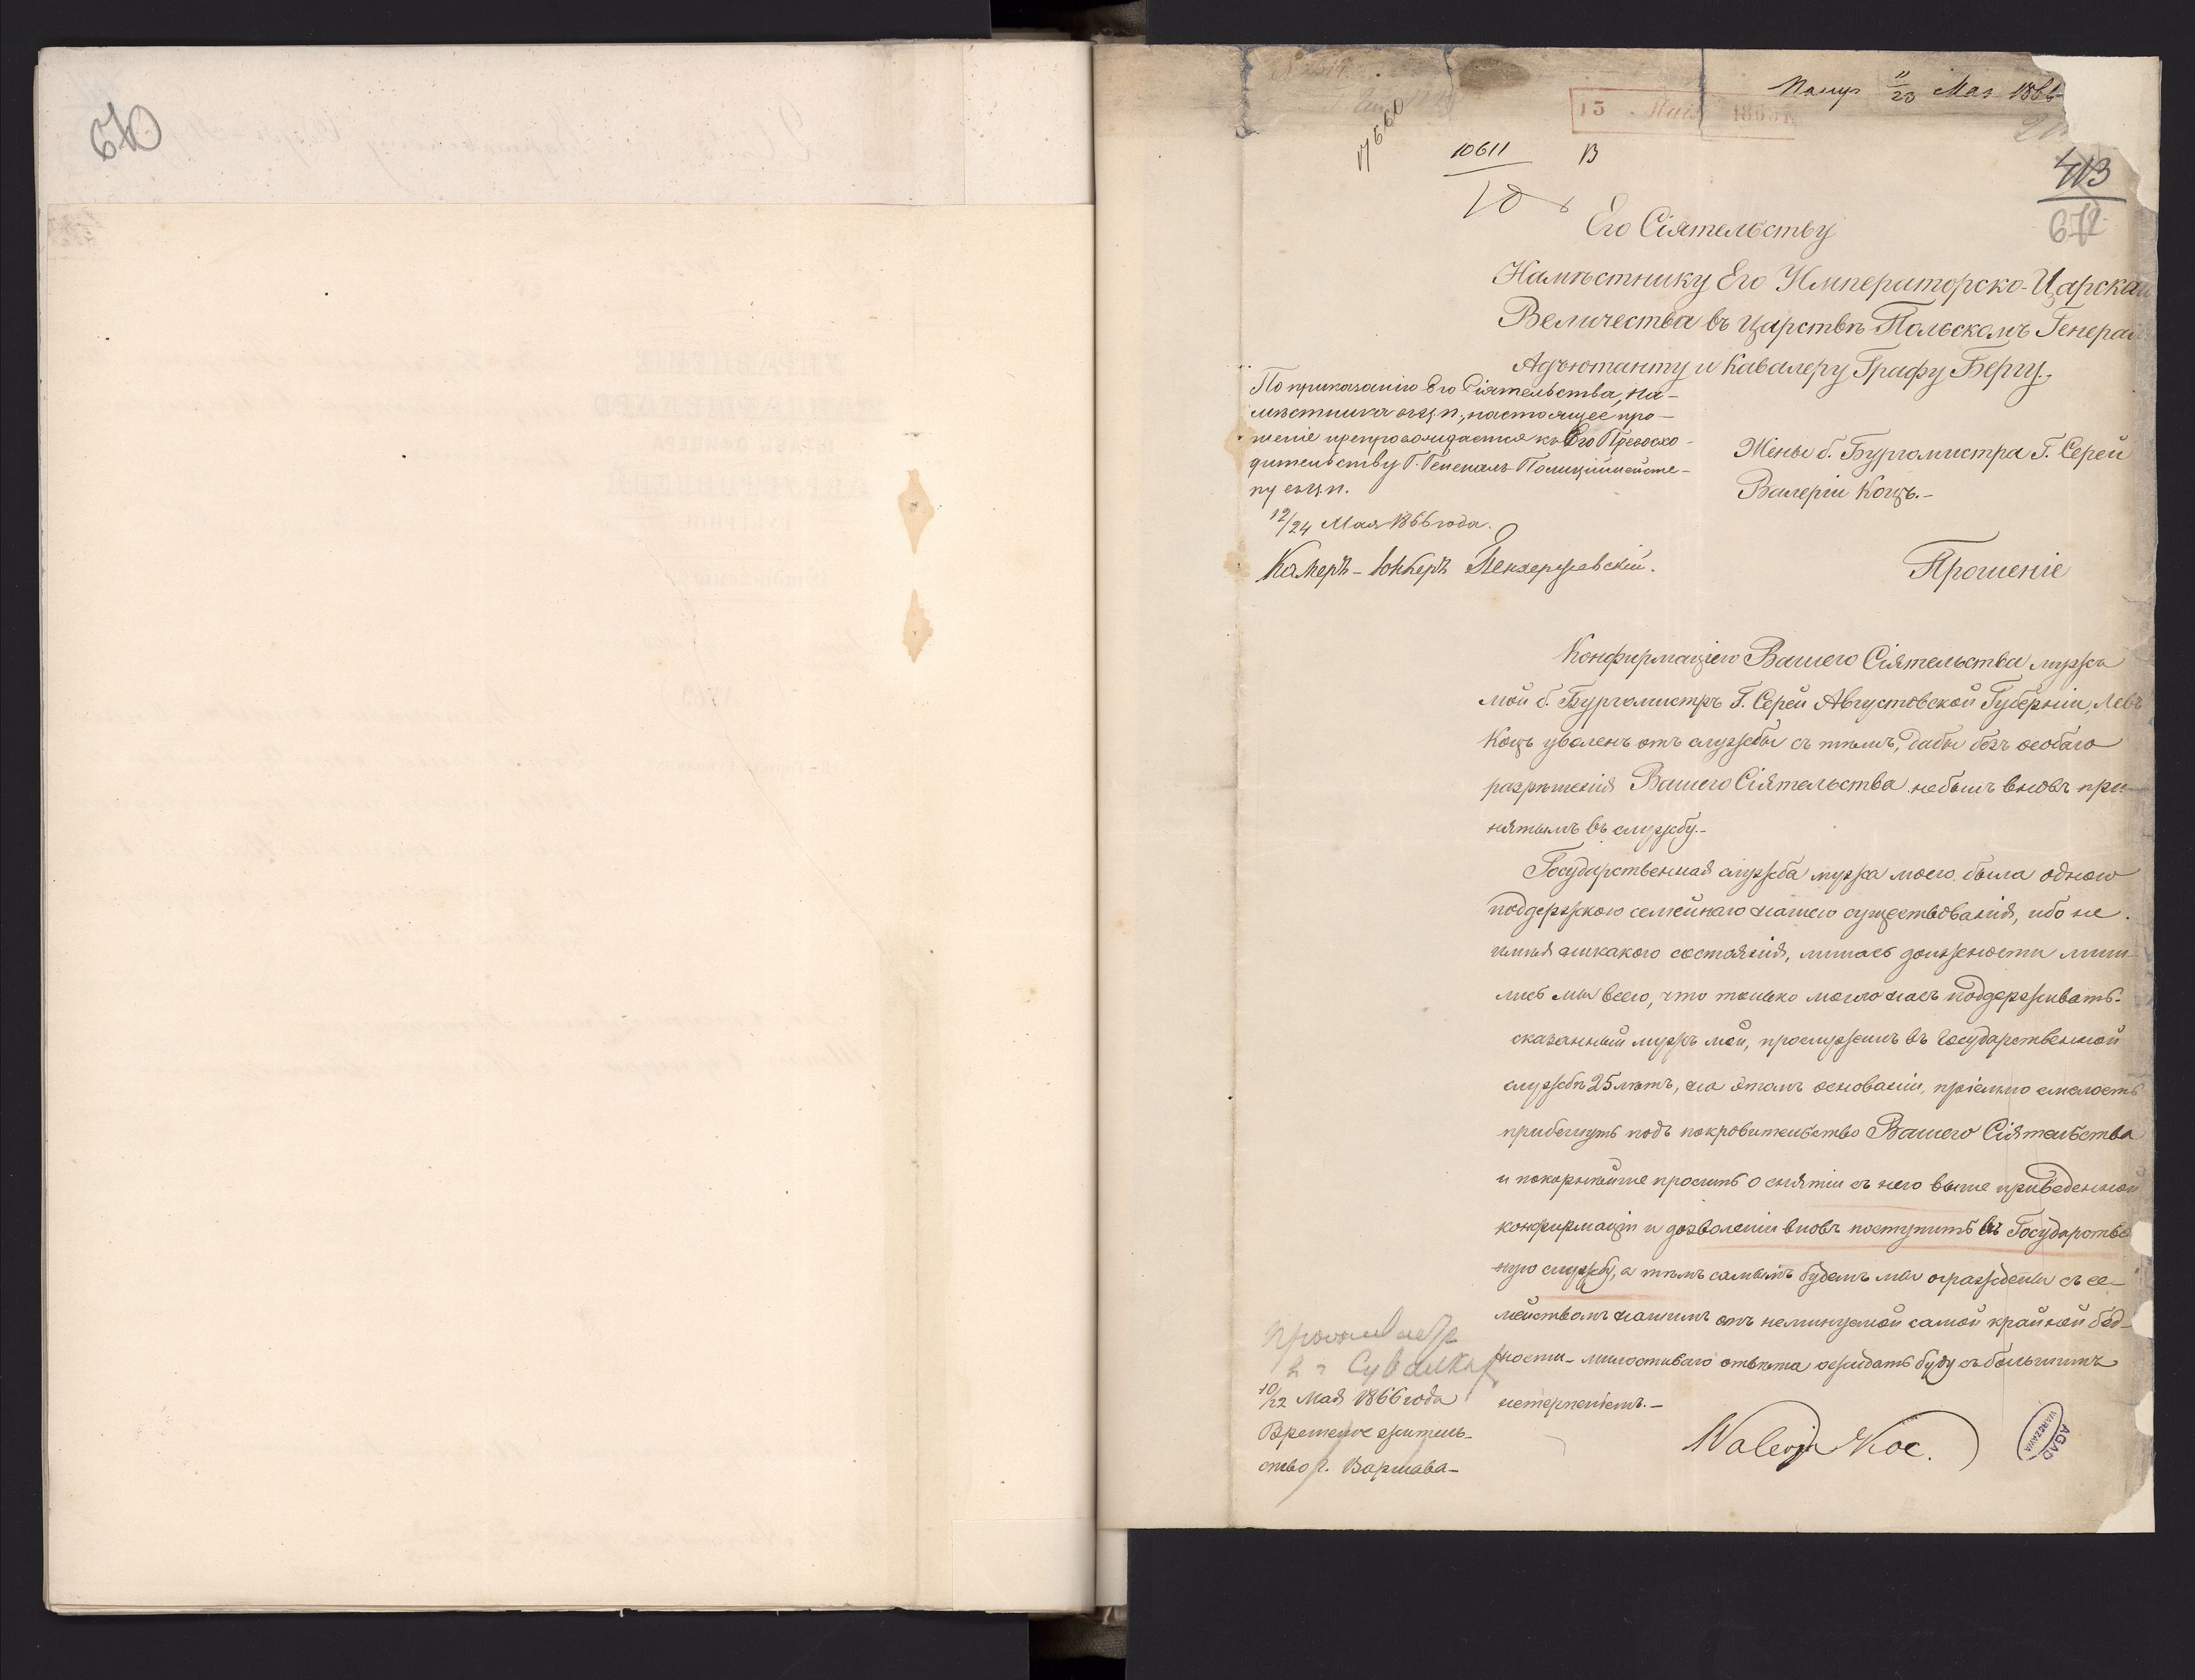 670
Получ 11/23 Мая 1866
13 Мая 1866 г.
17660
10611
В
413
672
Его Сіятельству
Намѣстнику Его Императорско-Царскаго
Величества въ Царствѣ Польскомъ Генералъ
Адъютанту и Кавалеру Графу Бергу.
По приказанію Его Сіятельства, На-
мѣстника въ Ц. П., настоящее про-
шеніе препровождается къ Его Превосхо-
дительству Г. Генералъ-Полиціймейсте-
ру въ Ц. П.
12/24 Мая 1866 года.
Камеръ-Юнкеръ
Жены б. Бургомистра Г. Серей
Валеріи Коцъ.-
Прошеніе
Конфирмаціею Вашего Сіятельства мужъ
мой б. Бургомистръ Г. Серей Августовской Губерніи, Левъ
Коцъ уволенъ отъ службы съ тѣмъ, дабы безъ особаго
разрѣшенія Вашего Сіятельства небылъ вновь при-
нятымъ въ службу.-
Государственная служба мужа моего была одною
поддержкою семейнаго нашего существованія, ибо не
имѣя никакого состоянія, лишась должности лиши-
лись мы всего, что только могло насъ поддерживать.
сказанный мужъ мой, прослужилъ въ Государственной
службѣ 25 лѣтъ, на этомъ основаніи, пріемлю смелость
прибегнуть подъ покровительство Вашего Сіятельства
и покорнѣйше просить о снятіи съ него выше приведенной
конфирмаціи и дозволеніи вновь поступить въ Государстве
ную службу, а тѣмъ самымъ будемъ мы ограждены съ се-
мействомъ нашимъ отъ неминуемой самой крайной бѣд-
ности - милостиваго отвѣта ожидать буду съ большимъ
нетерпеніемъ.-
Walerja Koc.
проживаетъ
въ г. Сувалкахъ
10/22 Мая 1866 года
Временное житель-
ство г. Варшава-
AGAD
WARSZAWA